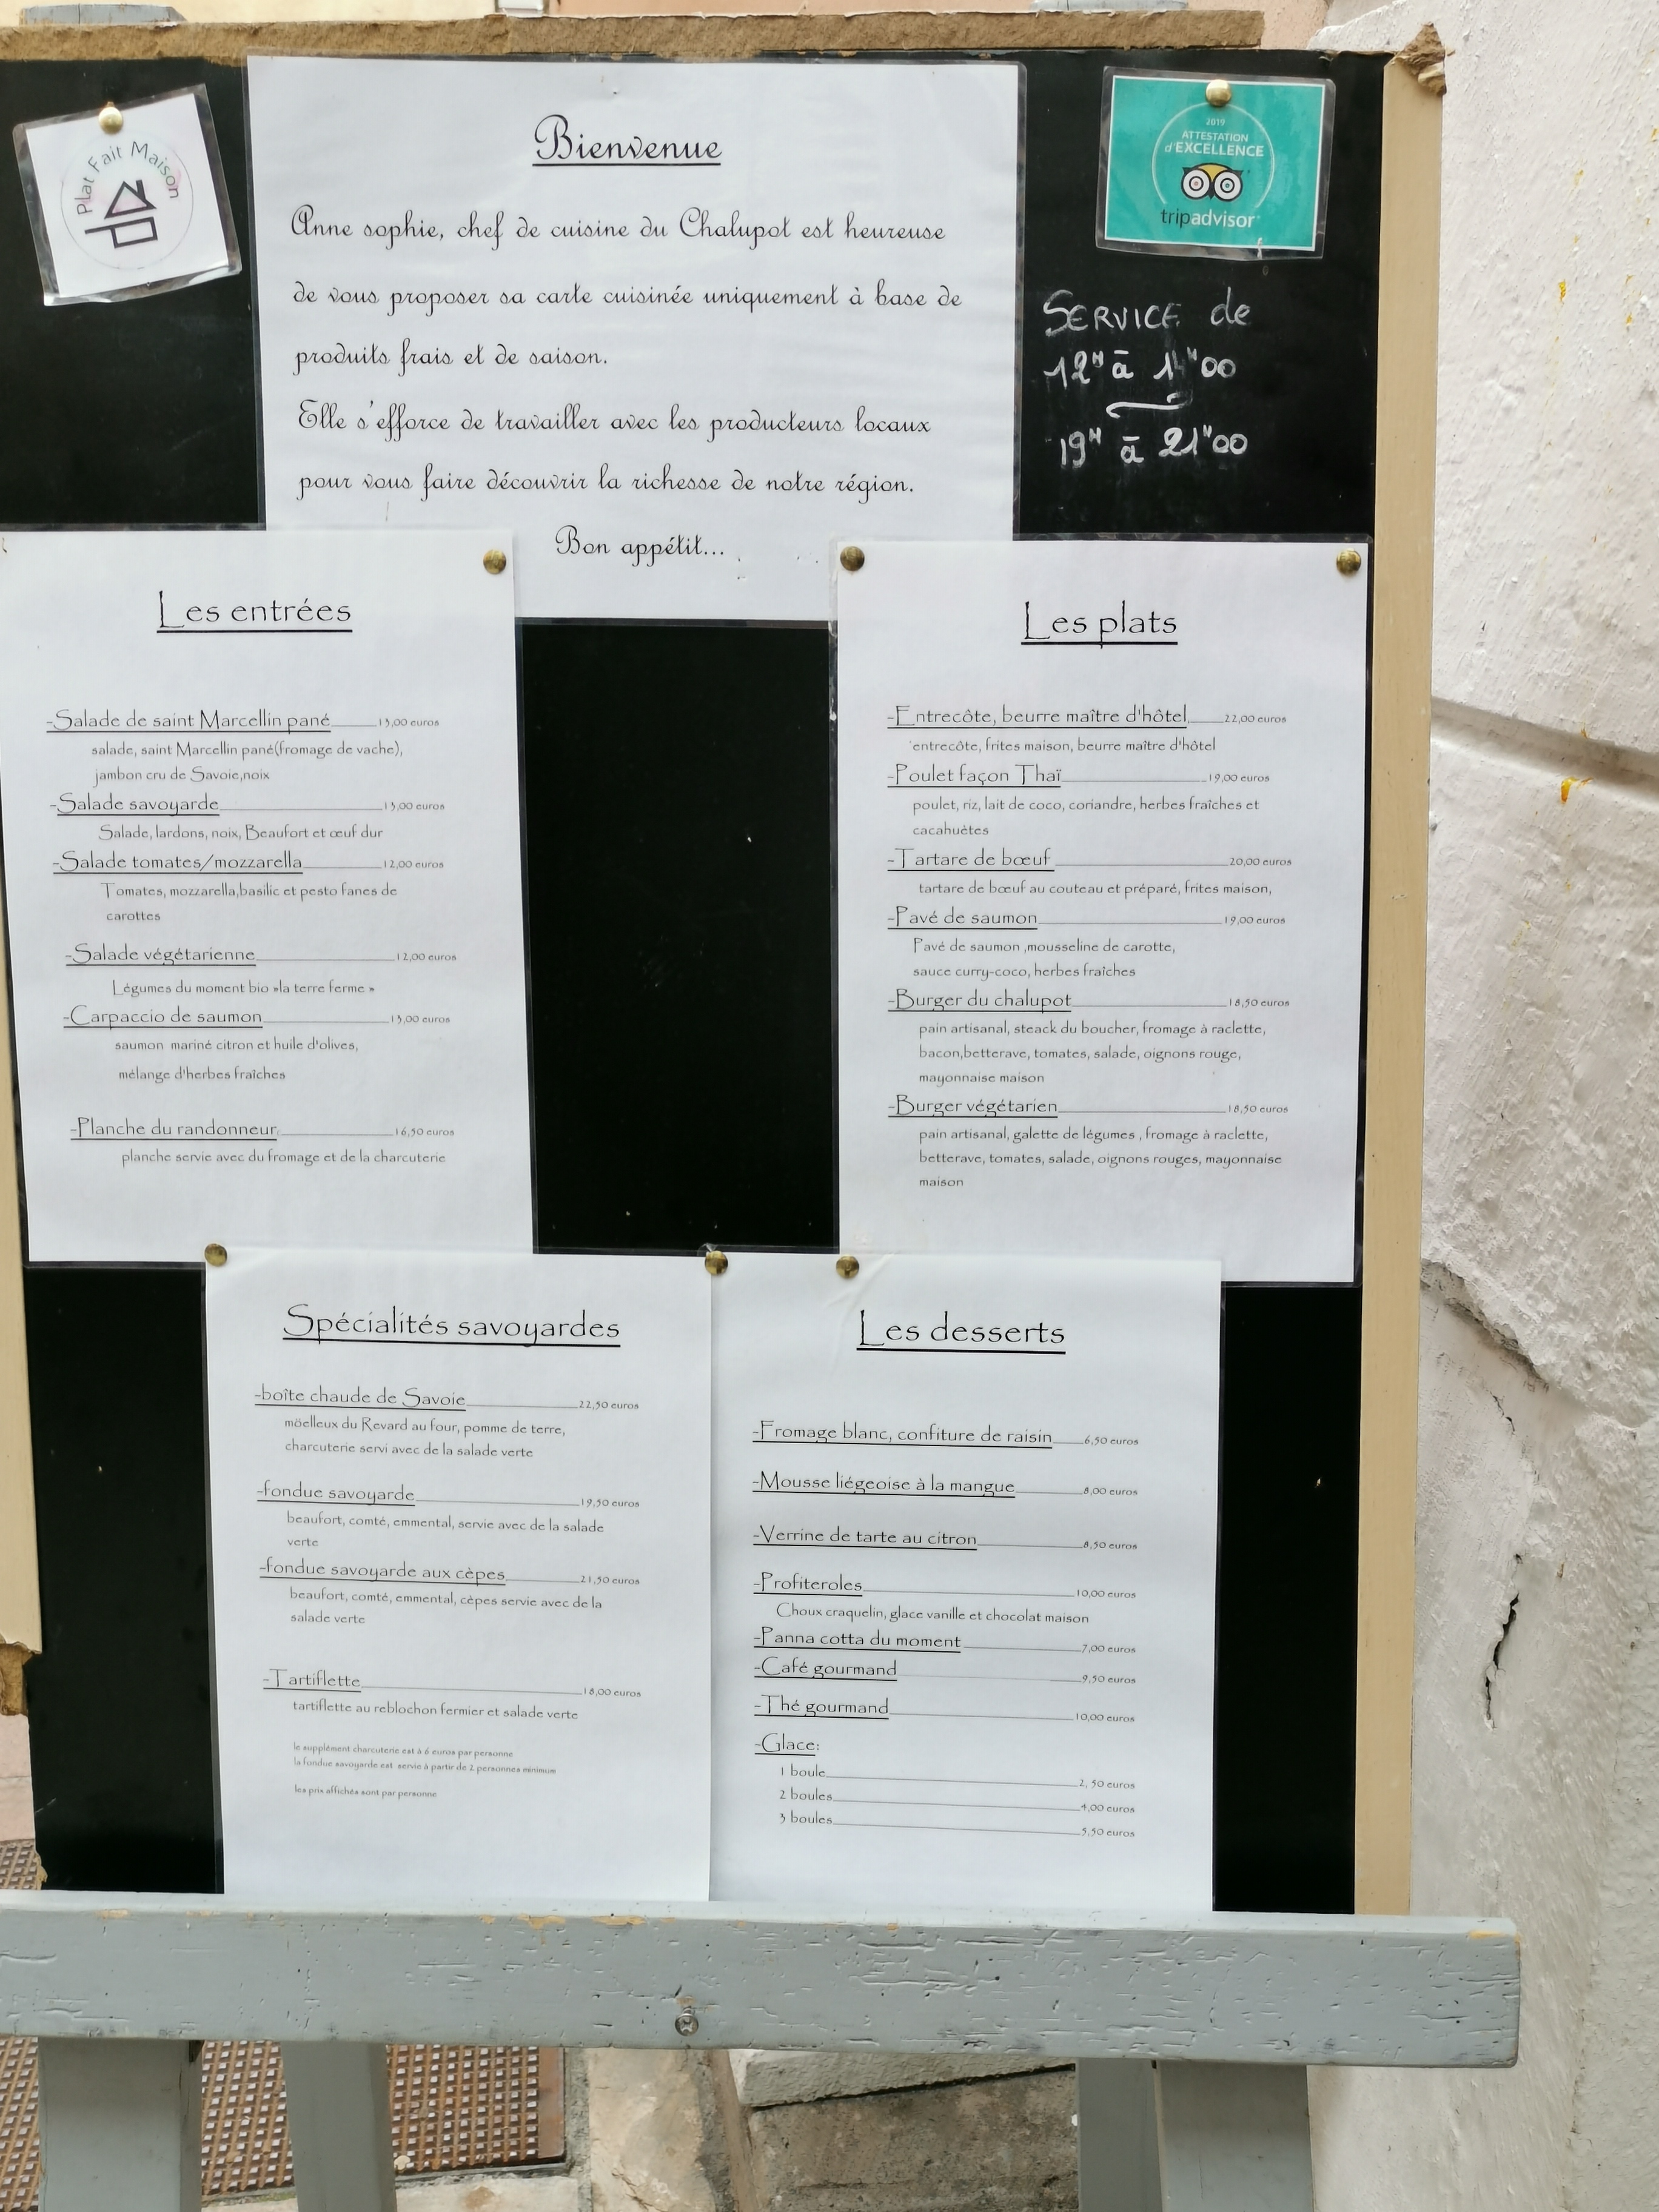 Plat Fait Maison
Bienvenue
Anne sophie, chef de cuisine du Chalupot est heureuse
de vous proposer sa carte cuisinée uniquement à base de
produits frais et de saison.
Elle s'efforce de travailler avec les producteurs locaux
pour vous faire découvrir la richesse de notre région.
Bon appétit...
2019
ATTESTATION
d'EXCELLENCE
tripadvisor
SERVICE de
12H à 1H00
19H à 21H00
Les entrées
-Salade de saint Marcellin pané 13,00 euros
salade, saint Marcellin pané(fromage de vache),
jambon cru de Savoie,noix
-Salade savoyarde 13,00 euros
Salade, lardons, noix, Beaufort et œuf dur
-Salade tomates/mozzarella 12,00 euros
Tomates, mozzarella,basilic et pesto fanes de
carottes
-Salade végétarienne 12,00 euros
Légumes du moment bio »la terre ferme »
-Carpaccio de saumon 13,00 euros
saumon mariné citron et huile d'olives,
mélange d'herbes fraîches
-Planche du randonneur 16,50 euros
planche servie avec du fromage et de la charcuterie
Les plats
-Entrecôte, beurre maître d'hôtel 22,00 euros
entrecôte, frites maison, beurre maître d'hôtel
-Poulet façon Thaï 19,00 euros
poulet, riz, lait de coco, coriandre, herbes fraîches et
cacahuètes
-Tartare de bœuf 20,00 euros
tartare de bœuf au couteau et préparé, frites maison,
-Pavé de saumon 19,00 euros
Pavé de saumon ,mousseline de carotte,
sauce curry-coco, herbes fraîches
-Burger du chalupot 18,50 euros
pain artisanal, steack du boucher, fromage à raclette,
bacon,betterave, tomates, salade, oignons rouge,
mayonnaise maison
-Burger végétarien 18,50 euros
pain artisanal, galette de légumes , fromage à raclette,
betterave, tomates, salade, oignons rouges, mayonnaise
maison
Spécialités savoyardes
-boîte chaude de Savoie 22,50 euros
möelleux du Revard au four, pomme de terre,
charcuterie servi avec de la salade verte
-fondue savoyarde 19,50 euros
beaufort, comté, emmental, servie avec de la salade
verte
-fondue savoyarde aux cèpes 21,50 euros
beaufort, comté, emmental, cèpes servie avec de la
salade verte
-Tartiflette 18,00 euros
tartiflette au reblochon fermier et salade verte
le supplément charcuterie est à 6 euros par personne
la fondue savoyarde est servie à partir de 2 personnes minimum
les prix affichés sont par personne
Les desserts
-Fromage blanc, confiture de raisin 6,50 euros
-Mousse liégeoise à la mangue 8,00 euros
-Verrine de tarte au citron 8,50 euros
-Profiteroles 10,00 euros
Choux craquelin, glace vanille et chocolat maison
-Panna cotta du moment 7,00 euros
-Café gourmand 9,50 euros
-Thé gourmand 10,00 euros
-Glace:
1 boule 2, 50 euros
2 boules 4,00 euros
3 boules 5,50 euros